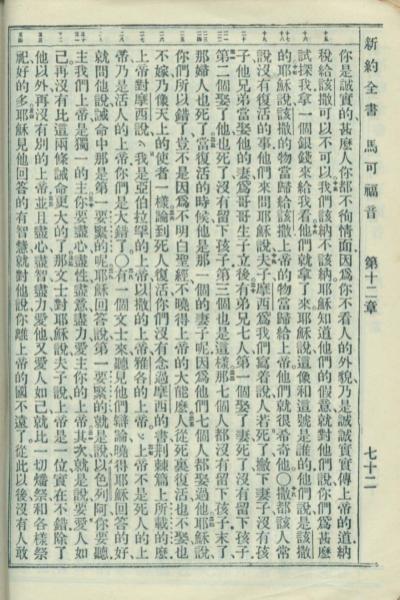 新約全書 馬可福音 第十二章 七十二
你是誠實的甚麼人你都不徇情面因爲你不看人的外貌乃是誠誠實實傳上帝的道納
稅給該撒可以不可以我們該納不該納耶穌知道他們的假意就對他們說你們爲甚麼
試探我拿一個銀錢來給我看他們就拿了來耶穌說這像和這號是誰的他們說是該撒
的耶穌說該撒的物當歸給該撒上帝的物當歸給上帝他們就很希奇他〇撒都該人常
說沒有復活的事他們來問耶穌說夫子摩西爲我們寫着說人若死了撇下妻子沒有孩
子他兄弟當娶他的妻爲哥哥生子立後有弟兄七人第一個娶了妻死了沒有留下孩子
第二個娶了他也死了沒有留下孩子第三個也是這樣那七個人都沒有留下孩子末了
那婦人也死了當復活的時候他是那一個的妻子呢因爲他們七個人都娶過他耶穌說
你們所以錯了豈不是因爲不明白聖經不曉得上帝的大能麼人從死裏復活也不娶也
不嫁乃像天上的使者一樣論到死人復活你們沒有念過摩西的書荆棘篇上所載的麼
上帝對摩西說我是亞伯拉罕的上帝以撒的上帝雅各的上帝上帝不是死人的上
帝乃是活人的上帝你們是大錯了〇有一個文士來聽見他們辯論曉得耶穌回答的好
就問他說誡命中那是第一要緊的呢耶穌回答說第一要緊的就是說以色列阿你要聽
主我們上帝是獨一的主你要盡心盡性盡意盡力愛主你的上帝其次就是說要愛人如
己再沒有比這兩條誡命更大的了那文士對耶穌說夫子說上帝是一位實在不錯除了
他以外再沒有別的上帝並且盡心盡智盡力愛他又愛人如己就比一切燔祭和各樣祭
祀好的多耶穌見他回答的有智慧就對他說你離上帝的國不遠了從此以後沒有人敢